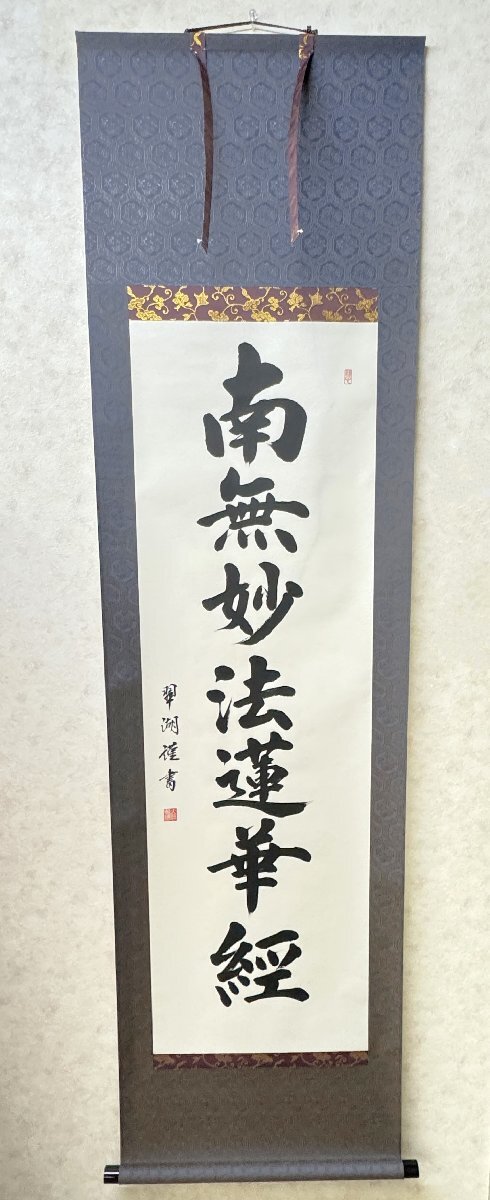 南無妙法蓮華經
翠湖謹書